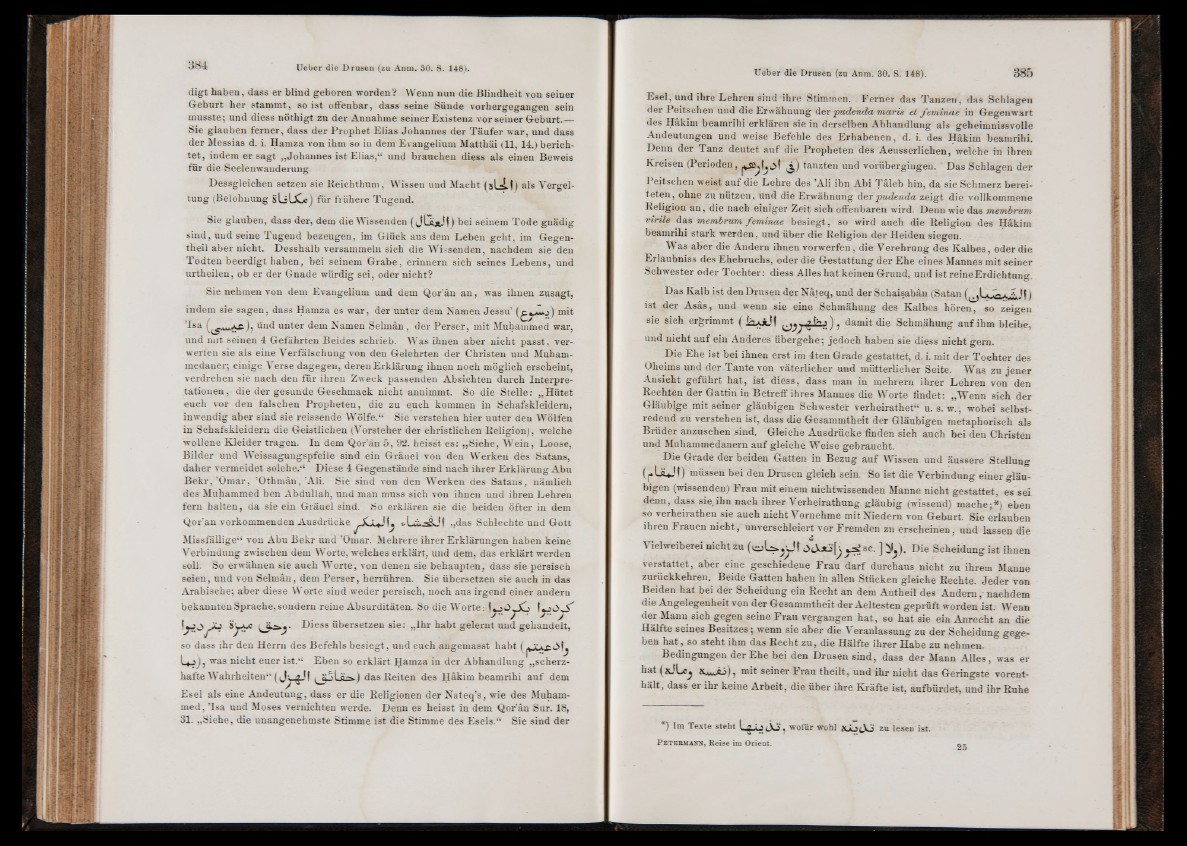 384
Ueber die Drusen (zu Anm. 30. S. 148).
digt haben, dass er blind geboren worden? Wenn nun die Blindheit von seiner
Geburt her stammt, so ist offenbar, dass seine Sünde vorhergegangen sein
musste; und diess nöthigt zu der Annahme seiner Existenz vor seiner Geburt.—
Sie glauben ferner, dass der Prophet Elias Johannes der Täufer war, und dass
der Messias d. i. Hamza von ihm so in dem Evangelium Matthäi (11, 14.) berich-
tet, indem er sagt „Johannes ist Elias,“ und brauchen diess als einen Beweis
für die Seelenwanderung.
Dessgleichen setzen sie Reichthum, Wissen und Macht (الجاه) als Vergel-
tung (Belohnung مكافاة) für frühere Tugend.
Sie glauben, dass der, dem die Wissenden (العقال) bei seinem Tode gnädig
sind, und seine Tugend bezeugen, im Glück aus dem Leben geht, im Gegen-
theil aber nicht. Desshalb versammeln sich die Wissenden, nachdem sie den
Todten beerdigt haben, bei seinem Grabe, erinnern sich seines Lebens, und
urtheilen, ob er der Gnade würdig sei, oder nicht?
Sie nehmen von dem Evangelium und dem Qor'ân an, was ihnen zusagt,
indem sie sagen, dass Hamza es war, der unter dem Namen Jessu' (يسوع) mit
'Isa (عيسى), und unter dem Namen Selmân, der Perser, mit Muḥammed war,
und mit seinen 4 Gefährten Beides schrieb. Was ihnen aber nicht passt, ver-
werfen sie als eine Verfälschung von den Gelehrten der Christen und Muham-
medaner; einige Verse dagegen, deren Erklärung ihnen noch möglich erscheint,
verdrehen sie nach den für ihren Zweck passenden Absichten durch Interpre-
tationen, die der gesunde Geschmack nicht annimmt. So die Stelle: „Hütet
euch vor den falschen Propheten, die zu euch kommen in Schafskleidern,
inwendig aber sind sie reissende Wölfe.“ Sie verstehen hier unter den Wölfen
in Schafskleidern die Geistlichen (Vorsteher der christlichen Religion), welche
wollene Kleider tragen. In dem Qor'ân 5, 92. heisst es: „Siehe, Wein, Loose,
Bilder und Weissagungspfeile sind ein Gräuel von den Werken des Satans,
daher vermeidet solche.“ Diese 4 Gegenstände sind nach ihrer Erklärung Abu
Bekr, 'Omar, 'Othmân, 'Ali. Sie sind von den Werken des Satans, nämlich
des Muḥammed ben Abdullah, und man muss sich von ihnen und ihren Lehren
fern halten, da sie ein Gräuel sind. So erklären sie die beiden öfter in dem
Qor'an vorkommenden Ausdrücke الفحشاء والمنكر „das Schlechte und Gott
Missfällige“ von Abu Bekr und 'Omar. Mehrere ihrer Erklärungen haben keine
Verbindung zwischen dem Worte, welches erklärt, und dem, das erklärt werden
soll. So erwähnen sie auch Worte, von denen sie behaupten, dass sie persisch
seien, und von Selmân, dem Perser, herrühren. Sie übersetzen sie auch in das
Arabische; aber diese Worte sind weder persisch, noch aus irgend einer andern
bekannten Sprache, sondern reine Absurditäten. So die Worte:
Diess übersetzen sie: „Ihr habt gelernt und gehandelt,
so dass ihr den Herrn des Befehls besiegt, und euch angemasst habt
was nicht euer ist.“ Eben so erklärt Ḥamza in der Abhandlung „scherz-
hafte Wahrheiten“ (حقائق الهزل) das Reiten des Ḥâkim beamrihi auf dem
Esel als eine Andeutung, dass er die Religionen der Nateq's, wie des Muḥam-
med, 'Isa und Moses vernichten werde. Denn es heisst in dem Qor'ân Sur. 18,
31. „Siehe, die unangenehmste Stimme ist die Stimme des Esels.“ Sie sind der
Ueber die Drusen (zu Anm. 30. S. 148).
385
Esel, und ihre Lehren sind ihre Stimmen. Ferner das Tanzen, das Schlagen
der Peitschen und die Erwähnung der pudenda maris et feminae in Gegenwart
des Ḥâkim beamrihi erklären sie in derselben Abhandlung als geheimnissvolle
Andeutungen und weise Befehle des Erhabenen, d. i. des Ḥâkim beamrihi.
Denn der Tanz deutet auf die Propheten des Aeusserlichen, welche in ihren
Kreisen (Perioden, في ادوارهم) tanzten und vorübergingen. Das Schlagen der
Peitschen weist auf die Lehre des 'Ali ibn Abi Ṭâleb hin, da sie Schmerz berei-
teten, ohne zu nützen, und die Erwähnung der pudenda zeigt die vollkommene
Religion an, die nach einiger Zeit sich offenbaren wird. Denn wie das membrum
virile das membrum feminae besiegt, so wird auch die Religion des Ḥâkim
beamrihi stark werden, und über die Religion der Heiden siegen.
Was aber die Andern ihnen vorwerfen, die Verehrung des Kalbes, oder die
Erlaubniss des Ehebruchs, oder die Gestattung der Ehe eines Mannes mit seiner
Schwester oder Tochter: diess Alles hat keinen Grund, und ist reine Erdichtung.
Das Kalb ist den Drusen der Nâṭeq, und der Schaiṣabân (Satan الشيصبان)
ist der Asâs, und wenn sie eine Schmähung des Kalbes hören, so zeigen
sie sich ergrimmt (يظهرون الغيظ), damit die Schmähung auf ihm bleibe,
und nicht auf ein Anderes übergehe; jedoch haben sie diess nicht gern.
Die Ehe ist bei ihnen erst im 4ten Grade gestattet, d. i. mit der Tochter des
Oheims und der Tante von väterlicher und mütterlicher Seite. Was zu jener
Ansicht geführt hat, ist diess, dass man in mehrern ihrer Lehren von den
Rechten der Gattin in Betreff ihres Mannes die Worte findet: „Wenn sich der
Gläubige mit seiner gläubigen Schwester verheirathet“ u. s. w., wobei selbst-
redend zu verstehen ist, dass die Gesammtheit der Gläubigen metaphorisch als
Brüder anzusehen sind. Gleiche Ausdrücke finden sich auch bei den Christen
und Muhammedanern auf gleiche Weise gebraucht.
Die Grade der beiden Gatten in Bezug auf Wissen und äussere Stellung
(المقام) müssen bei den Drusen gleich sein. So ist die Verbindung einer gläu-
bigen (wissenden) Frau mit einem nichtwissenden Manne nicht gestattet, es sei
denn, dass sie ihn nach ihrer Verheirathung gläubig (wissend) mache;*) eben
so verheirathen sie auch nicht Vornehme mit Niedern von Geburt. Sie erlauben
ihren Frauen nicht, unverschleiert vor Fremden zu erscheinen, und lassen die
Vielweiberei nicht zu Die Scheidung ist ihnen
verstattet, aber eine geschiedene Frau darf durchaus nicht zu ihrem Manne
zurückkehren. Beide Gatten haben in allen Stücken gleiche Rechte. Jeder von
Beiden hat bei der Scheidung ein Recht an dem Antheil des Andern, nachdem
die Angelegenheit von der Gesammtheit der Aeltesten geprüft worden ist. Wenn
der Mann sich gegen seine Frau vergangen hat, so hat sie ein Anrecht an die
Hälfte seines Besitzes; wenn sie aber die Veranlassung zu der Scheidung gege-
ben hat, so steht ihm das Recht zu, die Hälfte ihrer Habe zu nehmen.
Bedingungen der Ehe bei den Drusen sind, dass der Mann Alles, was er
hat (نفسه وماله), mit seiner Frau theilt, und ihr nicht das Geringste vorent-
hält, dass er ihr keine Arbeit, die über ihre Kräfte ist, aufbürdet, und ihr Ruhe
*) Im Texte steht تدينها, wofür wohl تدينه zu lesen ist.
PETERMANN, Reise im Orient.
25